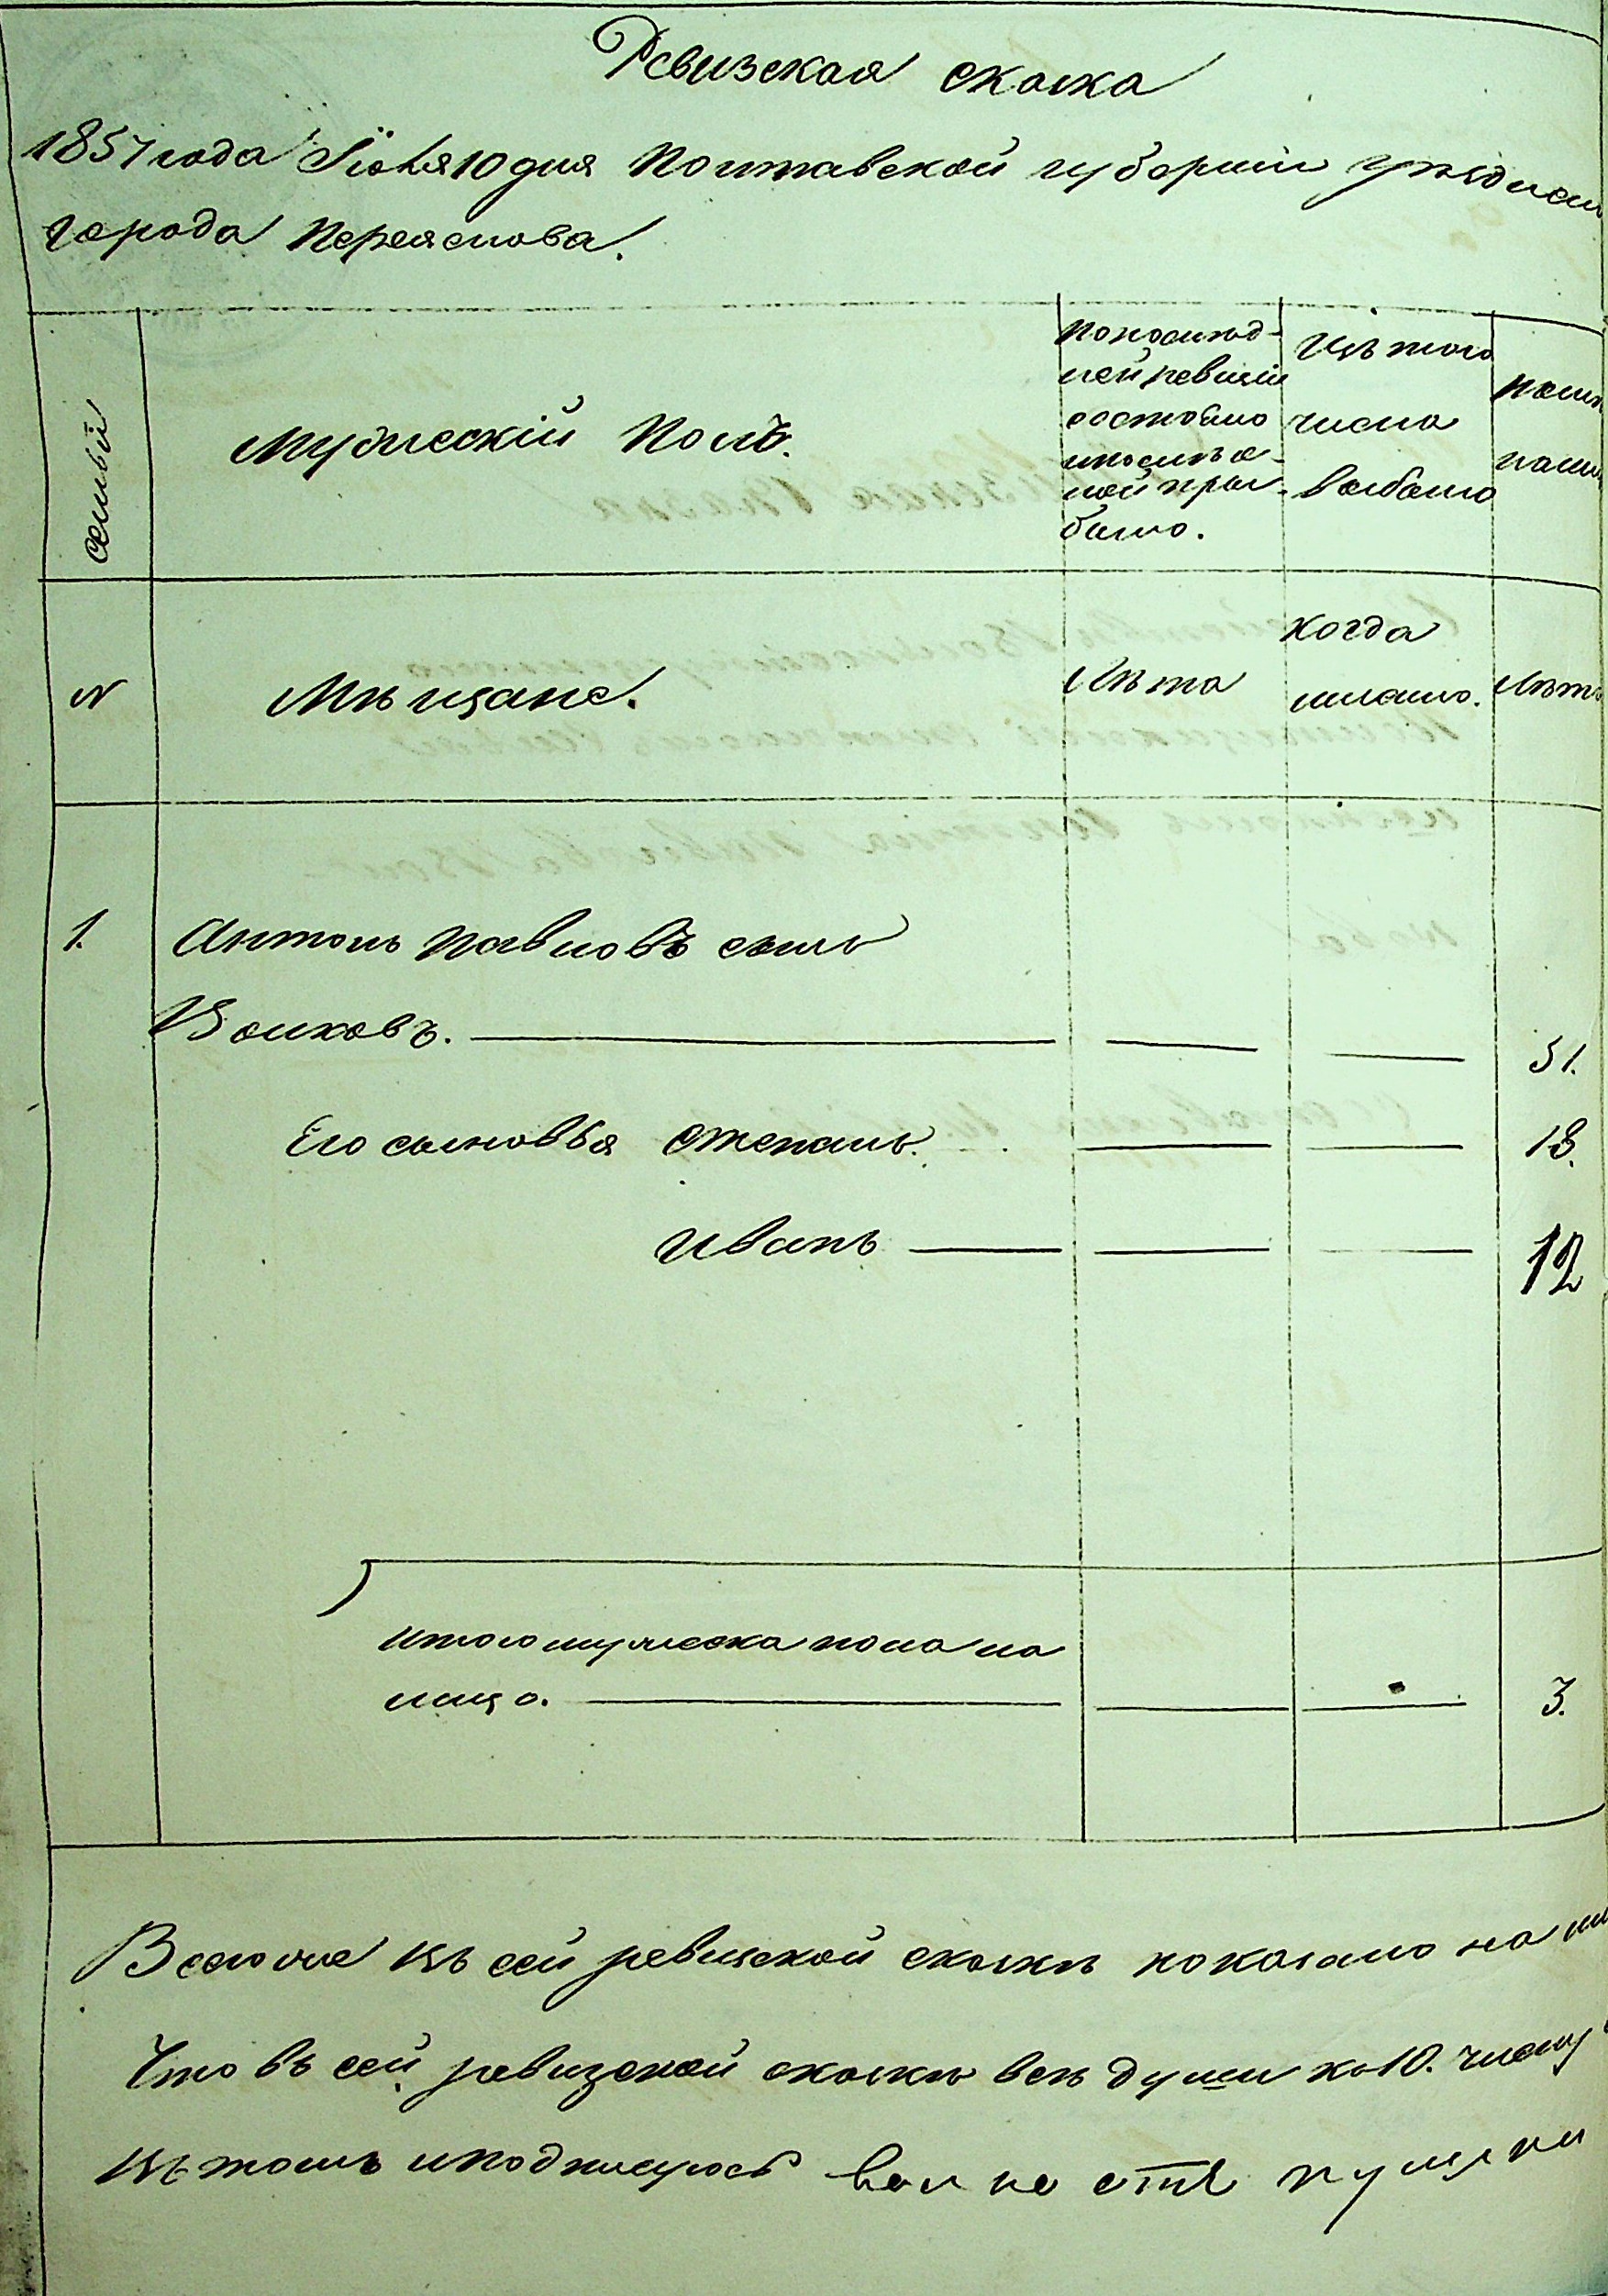 Ревизская сказка
1857 года Іюня 10 дня Полтавской губерніи уѣздном
города Переяслова.
семьи
Мужескій Полъ.
По послѣд-
ней ревизіи
состояло
и после о-
ной при-
было.
Изъ того
числа
выбыло
№
Мѣщане.
Лѣта
когда
именно.
Лѣта
1. Антонъ Павловъ сынъ
Волковъ. 51.
Его сыновья Степанъ. 18.
Иванъ 12
Итого мужеска пола на
лицо. 3.
Всего же въ сей ревизской сказкѣ показано на
Что въ сей ревизской сказкѣ всѣ души по 10. число
въ томъ и подписуюсь